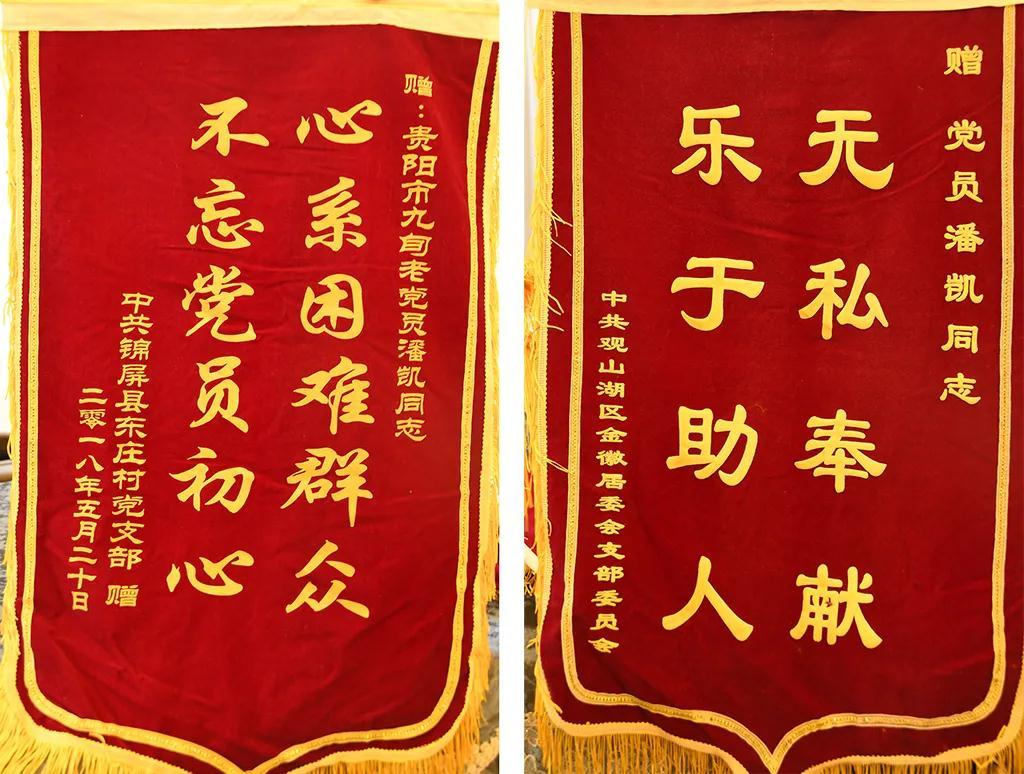 赠：贵阳市九旬老党员潘凯同志
心系困难群众
不忘党员初心
中共锦屏县东庄村党支部 赠
二零一八年五月二十日
赠 党员潘凯同志
无私奉献
乐于助人
中共观山湖区金徽居委会支部委员会